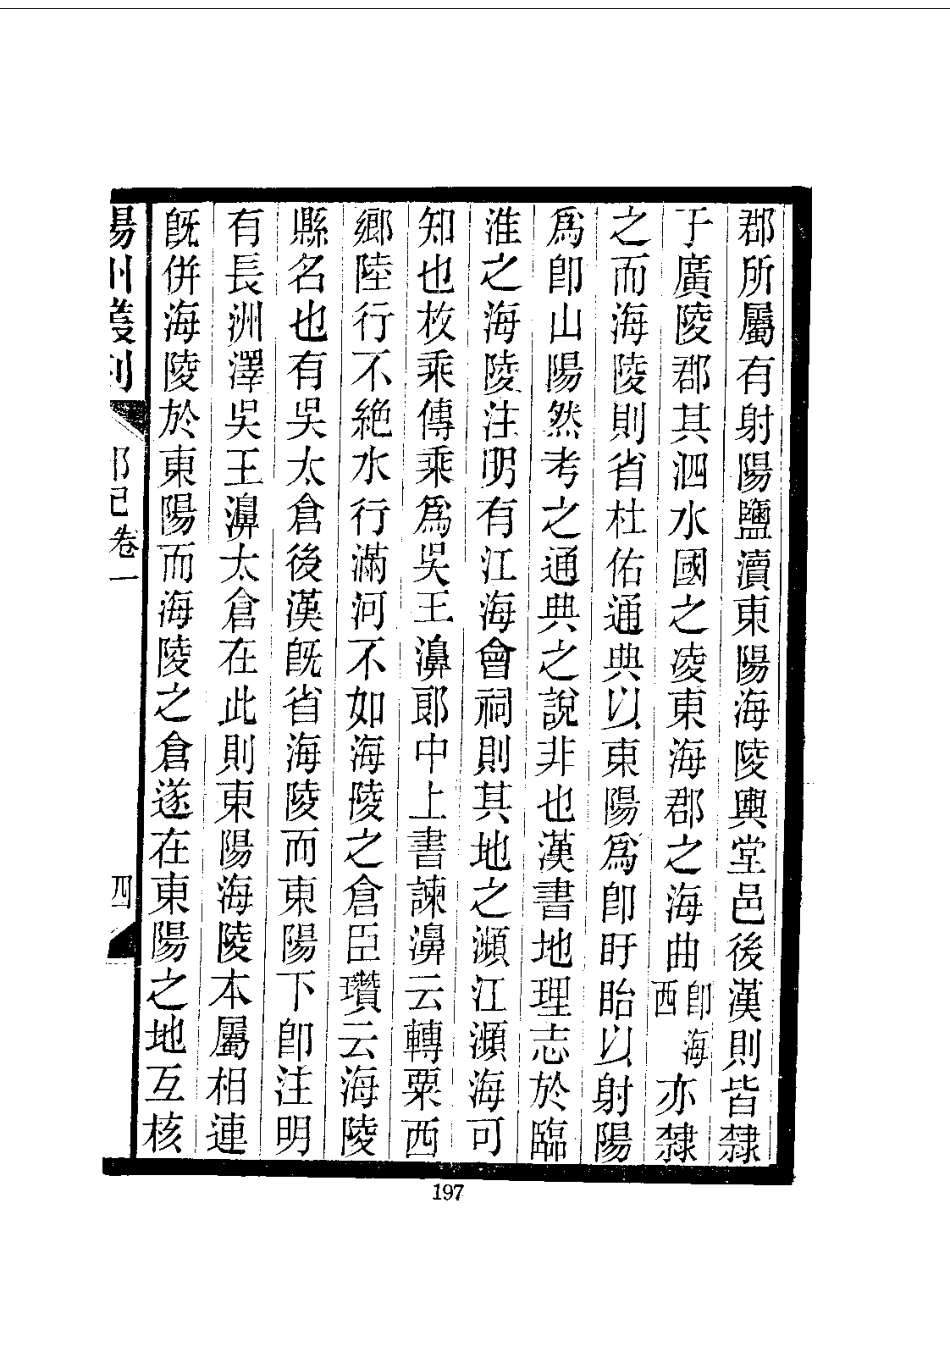 郡所屬有射陽鹽瀆東陽海陵輿堂邑後漢則皆隸
于廣陵郡其泗水國之凌東海郡之海曲卽海西亦隸
之而海陵則省杜佑通典以東陽爲卽盱眙以射陽
爲卽山陽然考之通典之說非也漢書地理志於臨
淮之海陵注明有江海會祠則其地之瀕江瀕海可
知也枚乘傳乘爲吳王濞郎中上書諫濞云轉粟西
鄉陸行不絕水行滿河不如海陵之倉臣瓚云海陵
縣名也有吳太倉後漢旣省海陵而東陽下卽注明
有長洲澤吳王濞太倉在此則東陽海陵本屬相連
旣併海陵於東陽而海陵之倉遂在東陽之地互核
揚州叢刊
邗記卷一
四
197